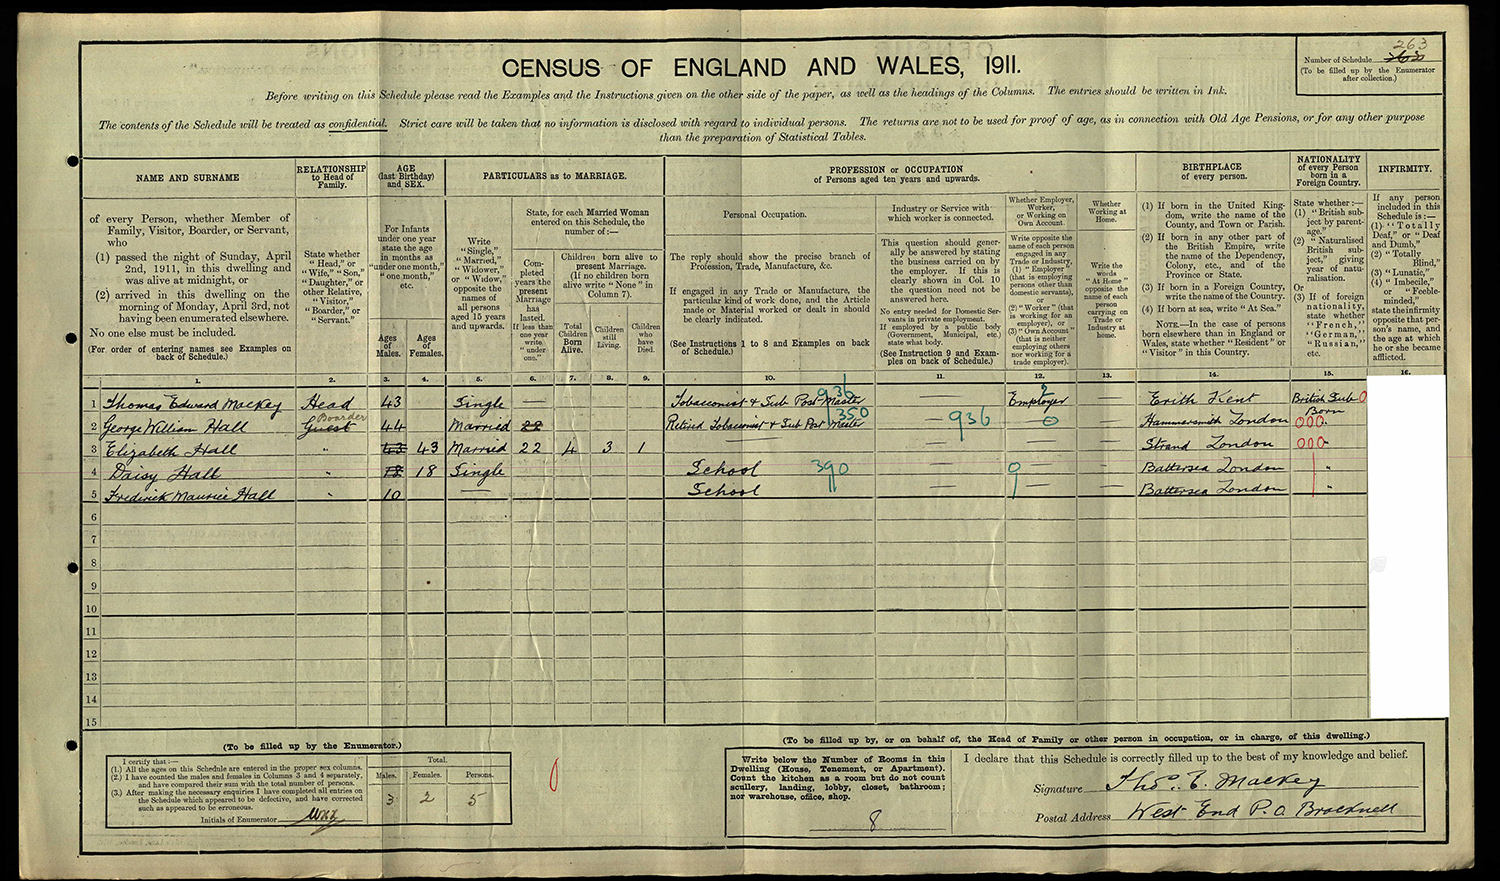 263
CENSUS OF ENGLAND AND WALES, 1911.
Number of Schedule
(To be filled up by the Enumerator
after collection.)
Before writing on this Schedule please read the Examples and the Instructions given on the other side of the paper, as well as the headings of the Columns. The entries should be written in Ink.
The contents of the Schedule will be treated as confidential. Strict care will be taken that no information is disclosed with regard to individual persons. The returns are not to be used for proof of age, as in connection with Old Age Pensions, or for any other purpose
than the preparation of Statistical Tables.
NAME AND SURNAME
of every Person, whether Member of
Family, Visitor, Boarder, or Servant,
who
(1) passed the night of Sunday, April
2nd, 1911, in this dwelling and
was alive at midnight, or
(2) arrived in this dwelling on the
morning of Monday, April 3rd, not
having been enumerated elsewhere.
No one else must be included.
(For order of entering names see Examples on
back of Schedule.)
RELATIONSHIP
to Head of
Family.
State whether
"Head," or
"Wife," "Son,"
"Daughter," or
other Relative,
"Visitor,"
"Boarder," or
"Servant."
AGE
(last Birthday)
and SEX.
For Infants
under one year
state the age
in months as
"under one month,"
"one month,"
etc.
Ages
of
Males.
Ages
of
Females.
PARTICULARS as to MARRIAGE.
Write
"Single,"
"Married,"
"Widower,"
or "Widow,"
opposite the
names of
all persons
aged 15 years
and upwards.
State, for each Married Woman
entered on this Schedule, the
number of:—
Com-
pleted
years the
present
Marriage
has
lasted.
If less than
one year
write
"under
one."
Children born alive to
present Marriage.
(If no children born
alive write "None" in
Column 7).
Total
Children
Born
Alive.
Children
still
Living.
Children
who
have
Died.
PROFESSION or OCCUPATION
of Persons aged ten years and upwards.
Personal Occupation.
The reply should show the precise branch of
Profession, Trade, Manufacture, &c.
If engaged in any Trade or Manufacture, the
particular kind of work done, and the Article
made or Material worked or dealt in should
be clearly indicated.
(See Instructions 1 to 8 and Examples on back
of Schedule.)
Industry or Service with
which worker is connected.
This question should gener-
ally be answered by stating
the business carried on by
the employer. If this is
clearly shown in Col. 10
the question need not be
answered here.
No entry needed for Domestic Ser-
vants in private employment.
If employed by a public body
(Government, Municipal, etc.)
state what body.
(See Instruction 9 and Exam-
ples on back of Schedule.)
Whether Employer,
Worker,
or Working on
Own Account.
Write opposite the
name of each person
engaged in any
Trade or Industry,
(1) "Employer"
(that is employing
persons other than
domestic servants),
or
(2) "Worker" (that
is working for an
employer), or
(3) "Own Account"
(that is neither
employing others
nor working for a
trade employer).
Whether
Working at
Home.
Write the
words
"At Home"
opposite the
name of each
person
carrying on
Trade or
Industry at
home.
BIRTHPLACE
of every person.
(1) If born in the United King-
dom, write the name of the
County, and Town or Parish.
(2) If born in any other part of
the British Empire, write
the name of the Dependency,
Colony, etc., and of the
Province or State.
(3) If born in a Foreign Country,
write the name of the Country.
(4) If born at sea, write "At Sea."
NOTE.—In the case of persons
born elsewhere than in England or
Wales, state whether "Resident" or
"Visitor" in this Country.
NATIONALITY
of every Person
born in a
Foreign Country.
State whether:—
(1) "British sub-
ject by parent-
age."
(2) "Naturalised
British sub-
ject," giving
year of natu-
ralisation.
Or
(3) If of foreign
nationality,
state whether
"French,"
"German,"
"Russian,"
etc.
INFIRMITY.
If any person
included in this
Schedule is:—
(1) "Totally
Deaf," or "Deaf
and Dumb,"
(2) "Totally
Blind,"
(3) "Lunatic,"
(4) "Imbecile,"
or "Feeble-
minded,"
state the infirmity
opposite that per-
son's name, and
the age at which
he or she became
afflicted.
1. 2. 3. 4. 5. 6. 7. 8. 9. 10. 11. 12. 13. 14. 15. 16.
1 Thomas Edward Mackey Head 43 Single — Tobacconist & Sub Post-Master 936 — Employer 2 — Erith Kent British Sub 0
Born
2 George William Hall Guest Boarder 44 Married 22 Retired Tobacconist & Sub Post Master 1350 — 936 — 0 — Hammersmith London 000
3 Elizabeth Hall " 43 43 Married 22 4 3 1 — — — — Strand London 000
4 Daisy Hall " 18 18 Single School 390 — 9 — Battersea London "
5 Frederick Maurice Hall " 10 — School — — — Battersea London "
6
7
8
9
10
11
12
13
14
15
(To be filled up by the Enumerator.)
I certify that:—
(1.) All the ages on this Schedule are entered in the proper sex columns.
(2.) I have counted the males and females in Columns 3 and 4 separately,
and have compared their sum with the total number of persons.
(3.) After making the necessary enquiries I have completed all entries on
the Schedule which appeared to be defective, and have corrected
such as appeared to be erroneous.
Initials of Enumerator
Total.
Males. Females. Persons.
3 2 5
0
(To be filled up by, or on behalf of, the Head of Family or other person in occupation, or in charge, of this dwelling.)
Write below the Number of Rooms in this
Dwelling (House, Tenement, or Apartment).
Count the kitchen as a room but do not count
scullery, landing, lobby, closet, bathroom;
nor warehouse, office, shop.
8
I declare that this Schedule is correctly filled up to the best of my knowledge and belief.
Signature Thos. E. Mackey
Postal Address West End P. O. Bracknell